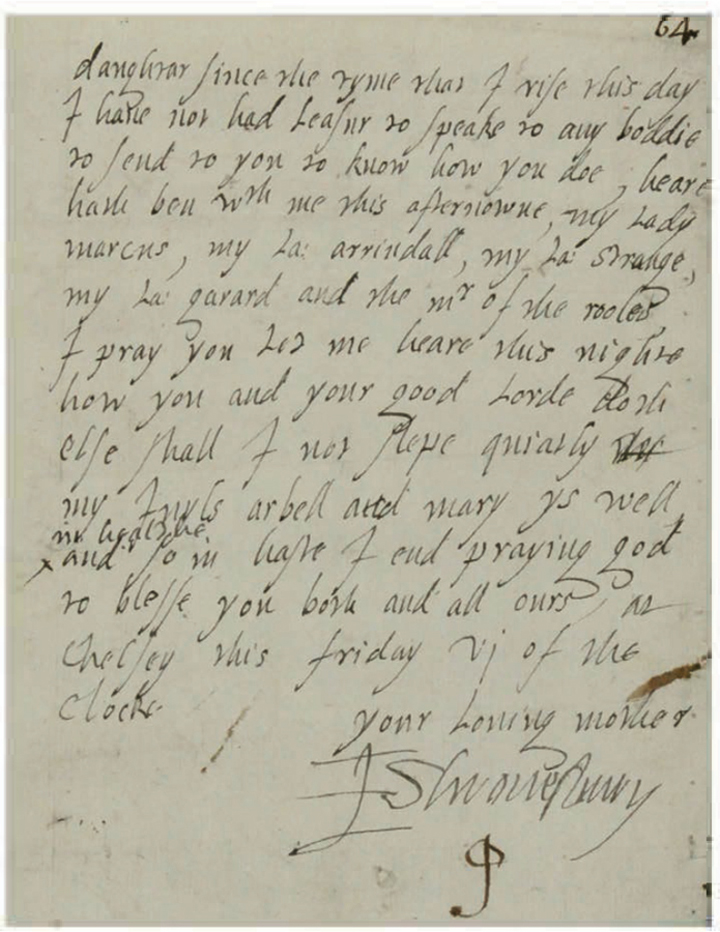 64
daughter since the tyme that I rise this day
I haue not had Leasur to speake to any boddie
to send to you to know how you doe, heare
hath ben wth me this afternowne, my Lady
marcus, my La: arrindall, my La: strange,
my La: garard and the mr of the rooles
I pray you Let me heare this nighte
how you and your good Lorde doth
else shall I not slepe quiatly
my Iuyls arbell and mary ys well
in healthe
x and so in haste I end praying god
to blesse you both and all ours at
Chelsey this friday vj of the
Clocke
your Louing mother
EShrouesbury